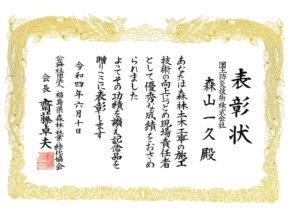 表彰状
国土防災技術株式会社
森山一久 殿
あなたは森林土木工事の施工
技術の向上につとめ現場責任者
として優秀な成績をおさめ
られました
よってその功績を讃え記念品を
贈りここに表彰します
令和四年六月十日
公益社団法人 福島県森林・林業・緑化協会
会長 齋藤卓夫